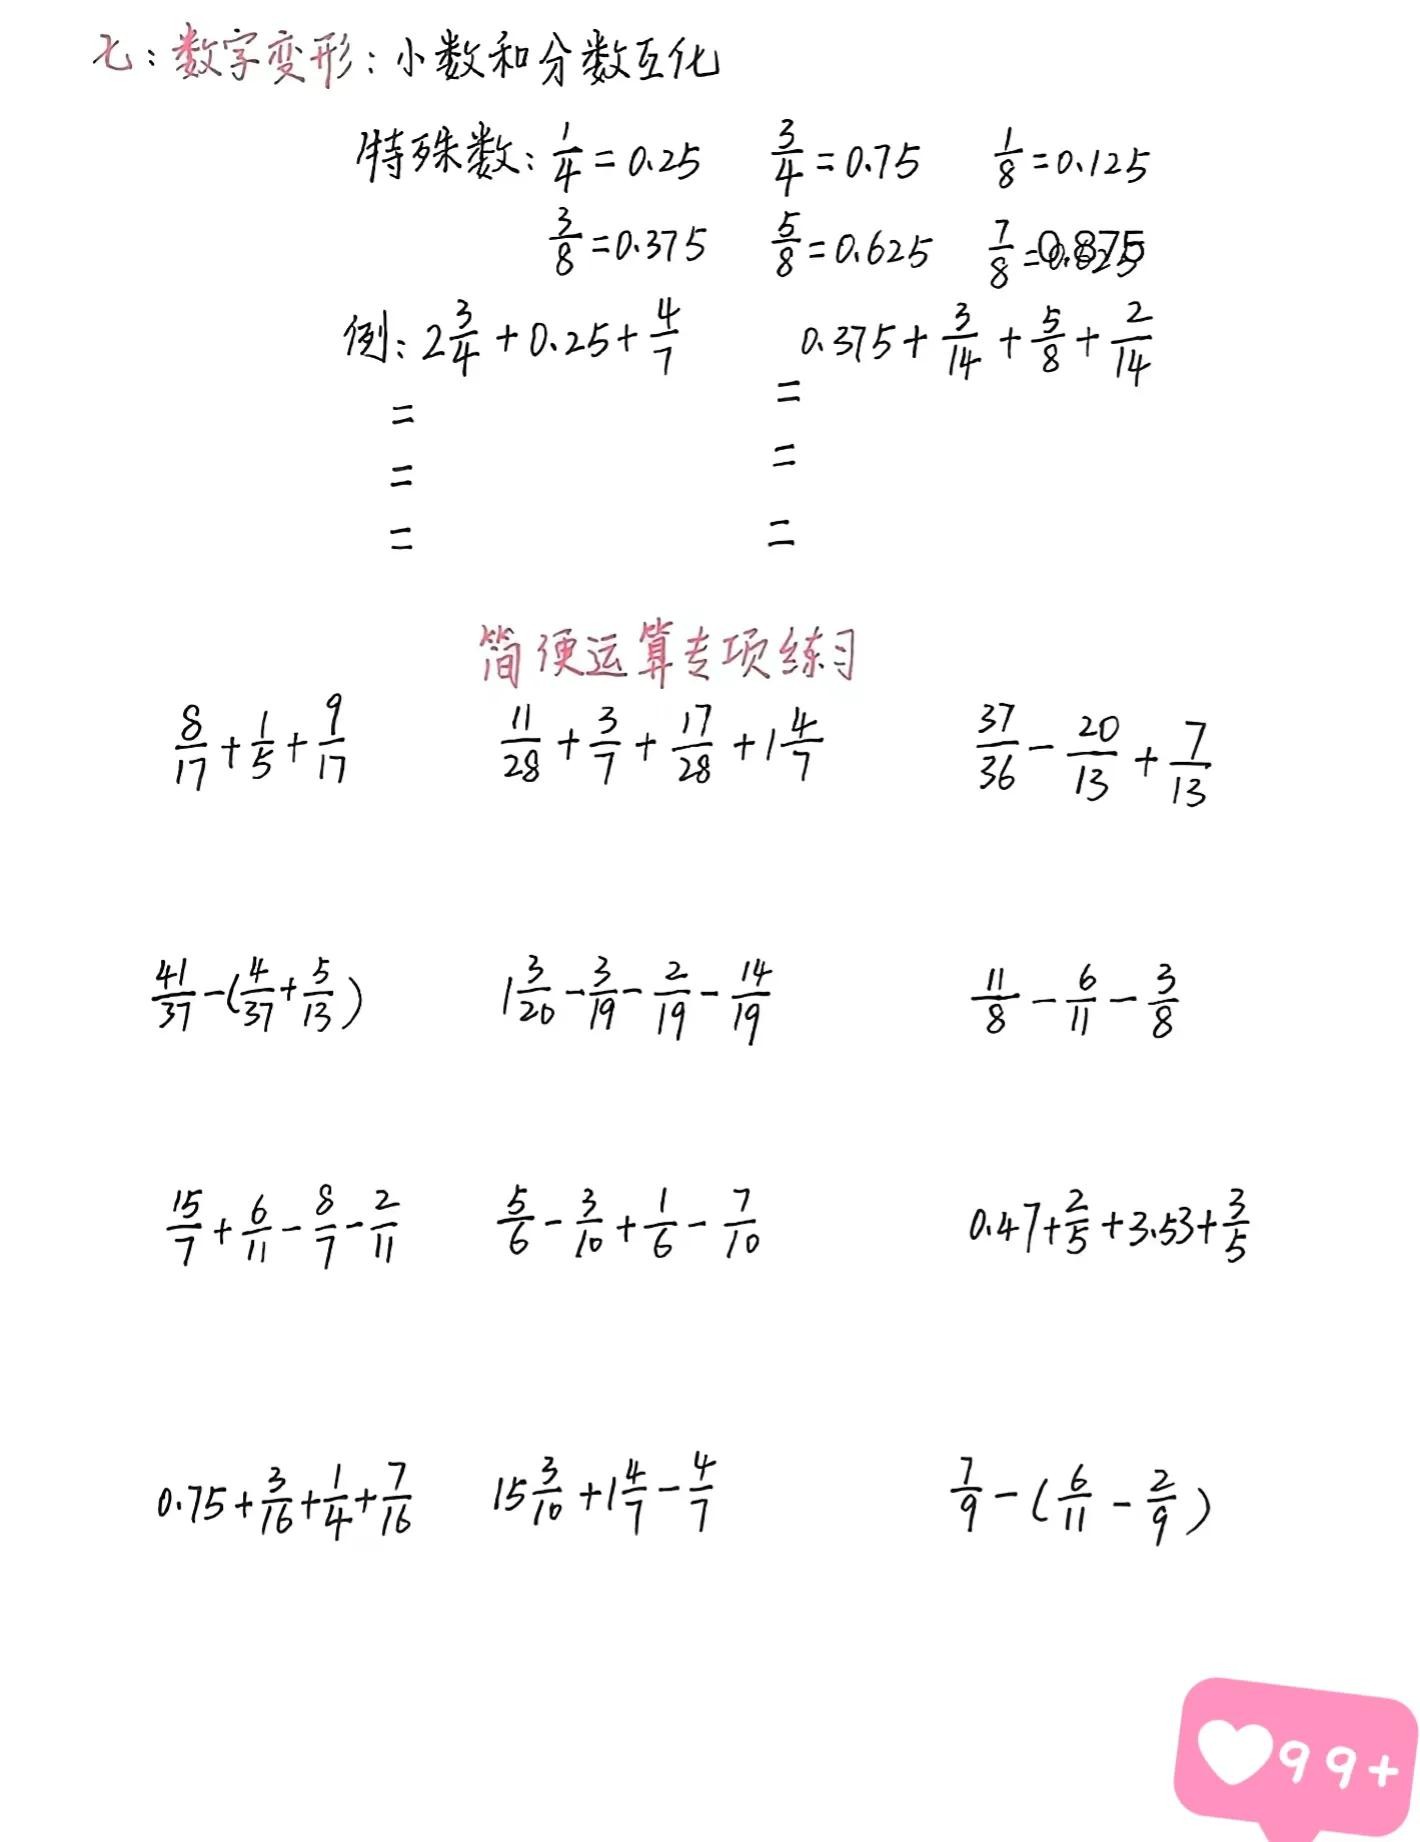 七：数字变形：小数和分数互化
特殊数：1/4 = 0.25 3/4 = 0.75 1/8 = 0.125
3/8 = 0.375 5/8 = 0.625 7/8 = 0.875
例：2 3/4 + 0.25 + 4/7 0.375 + 3/14 + 5/8 + 2/14
= =
= =
= =
简便运算专项练习
8/17 + 1/5 + 9/17 11/28 + 3/7 + 17/28 + 1 4/7 37/36 - 20/13 + 7/13
41/37 - (4/37 + 5/13) 1 3/20 - 3/19 - 2/19 - 14/19 11/8 - 6/11 - 3/8
15/7 + 6/11 - 8/7 - 2/11 5/6 - 3/10 + 1/6 - 7/10 0.47 + 2/5 + 3.53 + 3/5
0.75 + 3/16 + 1/4 + 7/16 15 3/10 + 1 4/7 - 4/7 7/9 - (6/11 - 2/9)
99+